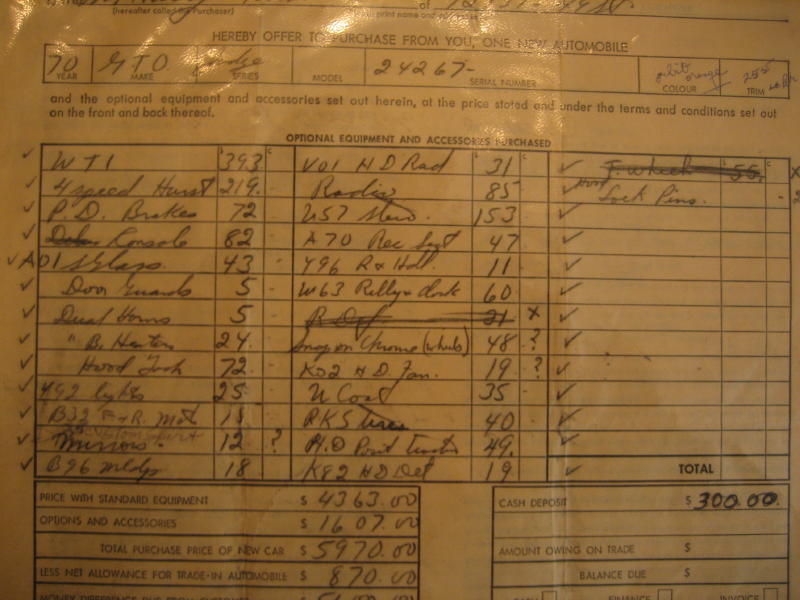 (hereafter called the Purchaser) of print name and
HEREBY OFFER TO PURCHASE FROM YOU, ONE NEW AUTOMOBILE
70 GTO Judge 24267- orbit orange 255
YEAR MAKE SERIES MODEL SERIAL NUMBER COLOUR TRIM
and the optional equipment and accessories set out herein, at the price stated and under the terms and conditions set out
on the front and back thereof.
OPTIONAL EQUIPMENT AND ACCESSORIES PURCHASED
✓ WT1 393 V01 H D Rad 31 ✓ F. wheel 55. x
✓ 4 speed Hurst 219. Radio 85 ✓ Hood Lock Pins.
✓ P.D. Brakes 72 U57 153 ✓
✓ Konsole 82 A70 Rec Seat 47 ✓
✓ A01 S Glass. 43 Y96 R & Hdl. 11 ✓
✓ Door Guards 5 W63 Rally & clock 60 ✓
✓ Dual Horns 5 R Def 21 x ✓
✓ " B. Heaters 24. Snag on Chrome (wheels) 48 ? ✓
✓ Hood Tach 72 K02 H D Fan. 19 ? ✓
492 lights 25 U Coat 35 ✓
✓ B32 F & R. Mat 40 ✓
✓ Mirrors 12 ? H.D Posit traction 49. ✓
✓ B96 mldgs 18 K82 H D Del 19 ✓ TOTAL
PRICE WITH STANDARD EQUIPMENT $ 4363.00
OPTIONS AND ACCESSORIES $ 1607.00
TOTAL PURCHASE PRICE OF NEW CAR $ 5970.00
LESS NET ALLOWANCE FOR TRADE-IN AUTOMOBILE $ 870.00
MONEY DIFFERENCE DUE FROM
CASH DEPOSIT $ 300.00.
AMOUNT OWING ON TRADE $
BALANCE DUE $
CASH FINANCE INVOICE